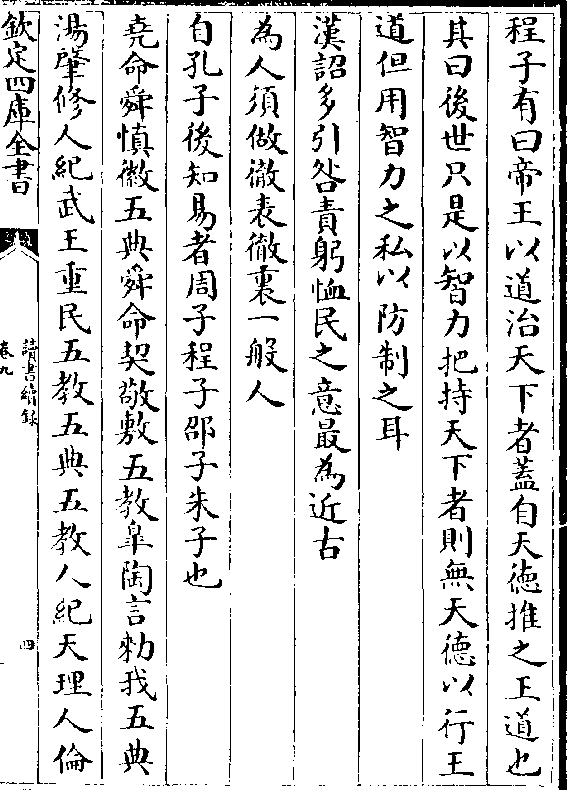 程子有曰帝王以道治天下者蓋自天徳推之王道也
其曰後世只是以智力把持天下者則無天德以行王
道但用智力之私以防制之耳
漢詔多引咎責躬恤民之意最為近古
為人須做徹表徹裏一般人
自孔子後知易者周子程子邵子朱子也
堯命舜慎徽五典舜命契敬敷五教臯陶言勑我五典
湯肇修人紀武王重民五教五典五教人紀天理人倫
欽定四庫全書
讀書續録
卷九
四